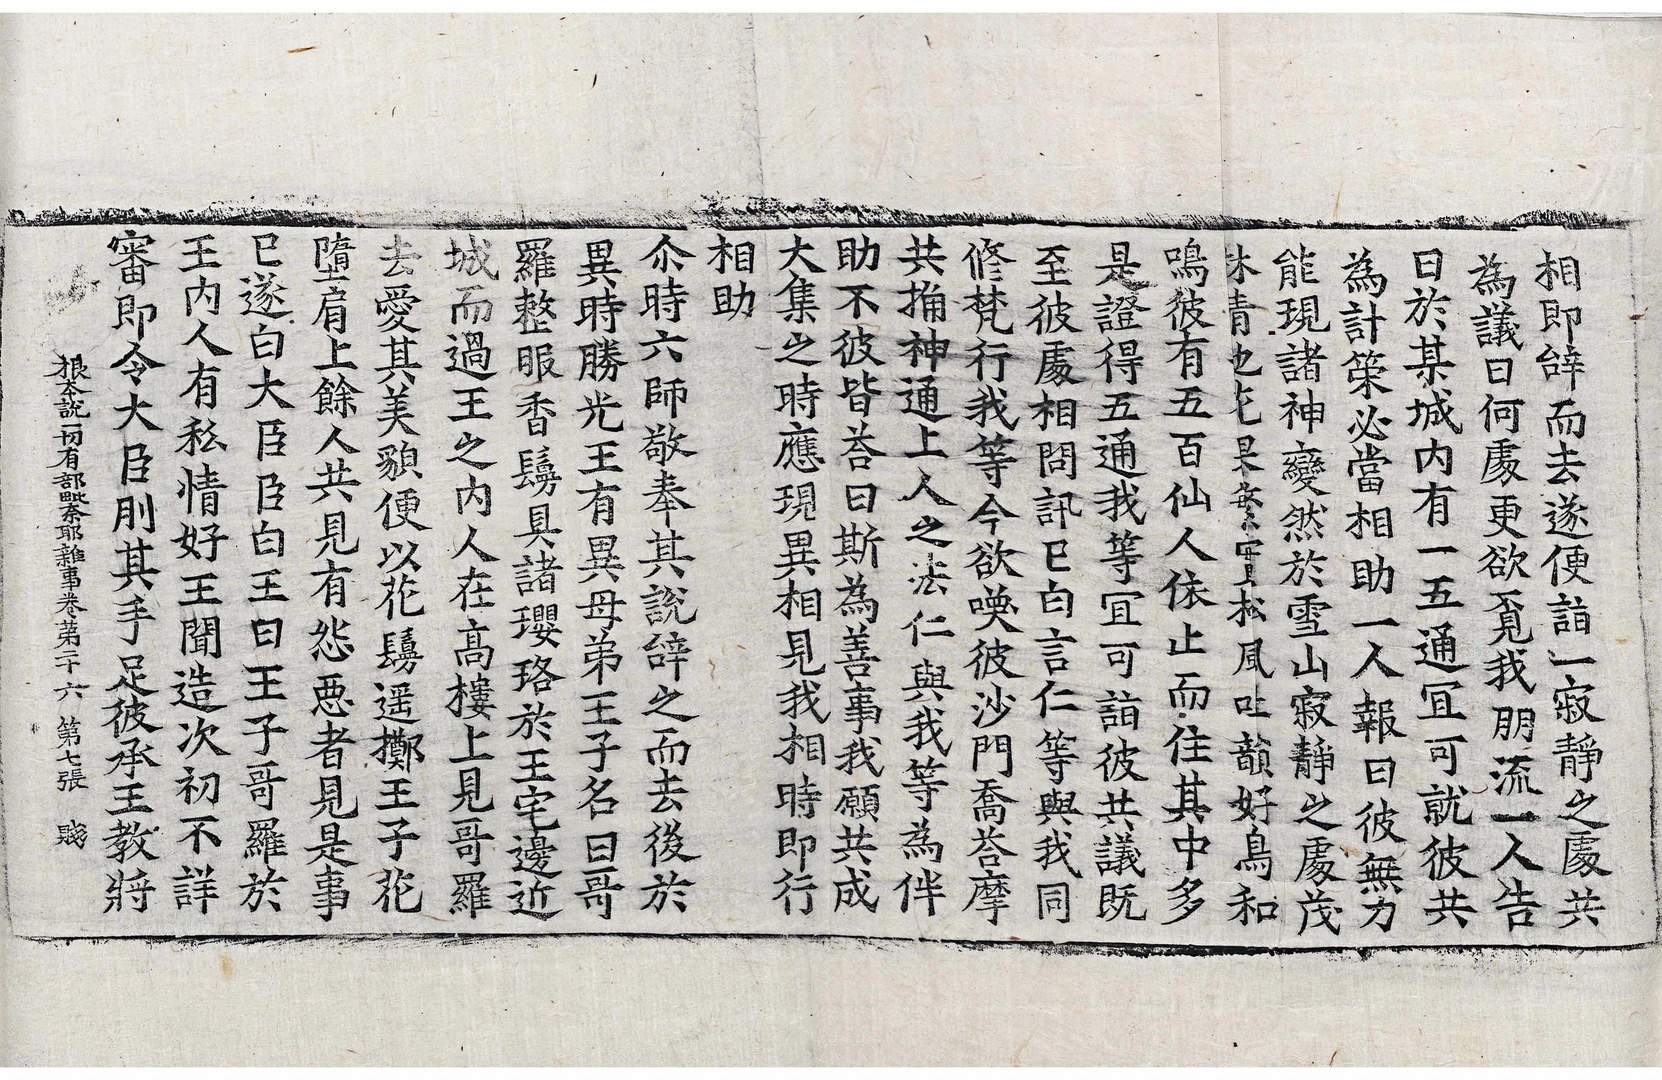 相即辝而去遂便詣一寂靜之處共
為議曰何處更欲覔我朋流一人告
曰於某城内有一五通冝可就彼共
為計策必當相助一人報曰彼無力
能現諸神變然於雪山寂靜之處茂
林清池花果繁實松風吐韻好鳥和
鳴彼有五百仙人依止而住其中多
是證得五通我等冝可詣彼共議既
至彼處相問訊已白言仁等與我同
修梵行我等今欲喚彼沙門喬荅摩
共捔神通上人之法仁與我等為伴
助不彼皆荅曰斯為善事我願共成
大集之時應現異相見我相時即行
相助
尒時六師敬奉其說辝之而去後於
異時勝光王有異母弟王子名曰哥
羅整服香鬘具諸瓔珞於王宅邊近
城而過王之内人在高樓上見哥羅
去愛其美䫉便以花鬘遥擲王子花
墮肩上餘人共見有怨惡者見是事
已遂白大臣臣白王曰王子哥羅於
王内人有私情好王聞造次初不詳
審即令大臣刖其手足彼承王教將
根本說一切有部毗奈耶雜事卷第二十六 第七張 賤